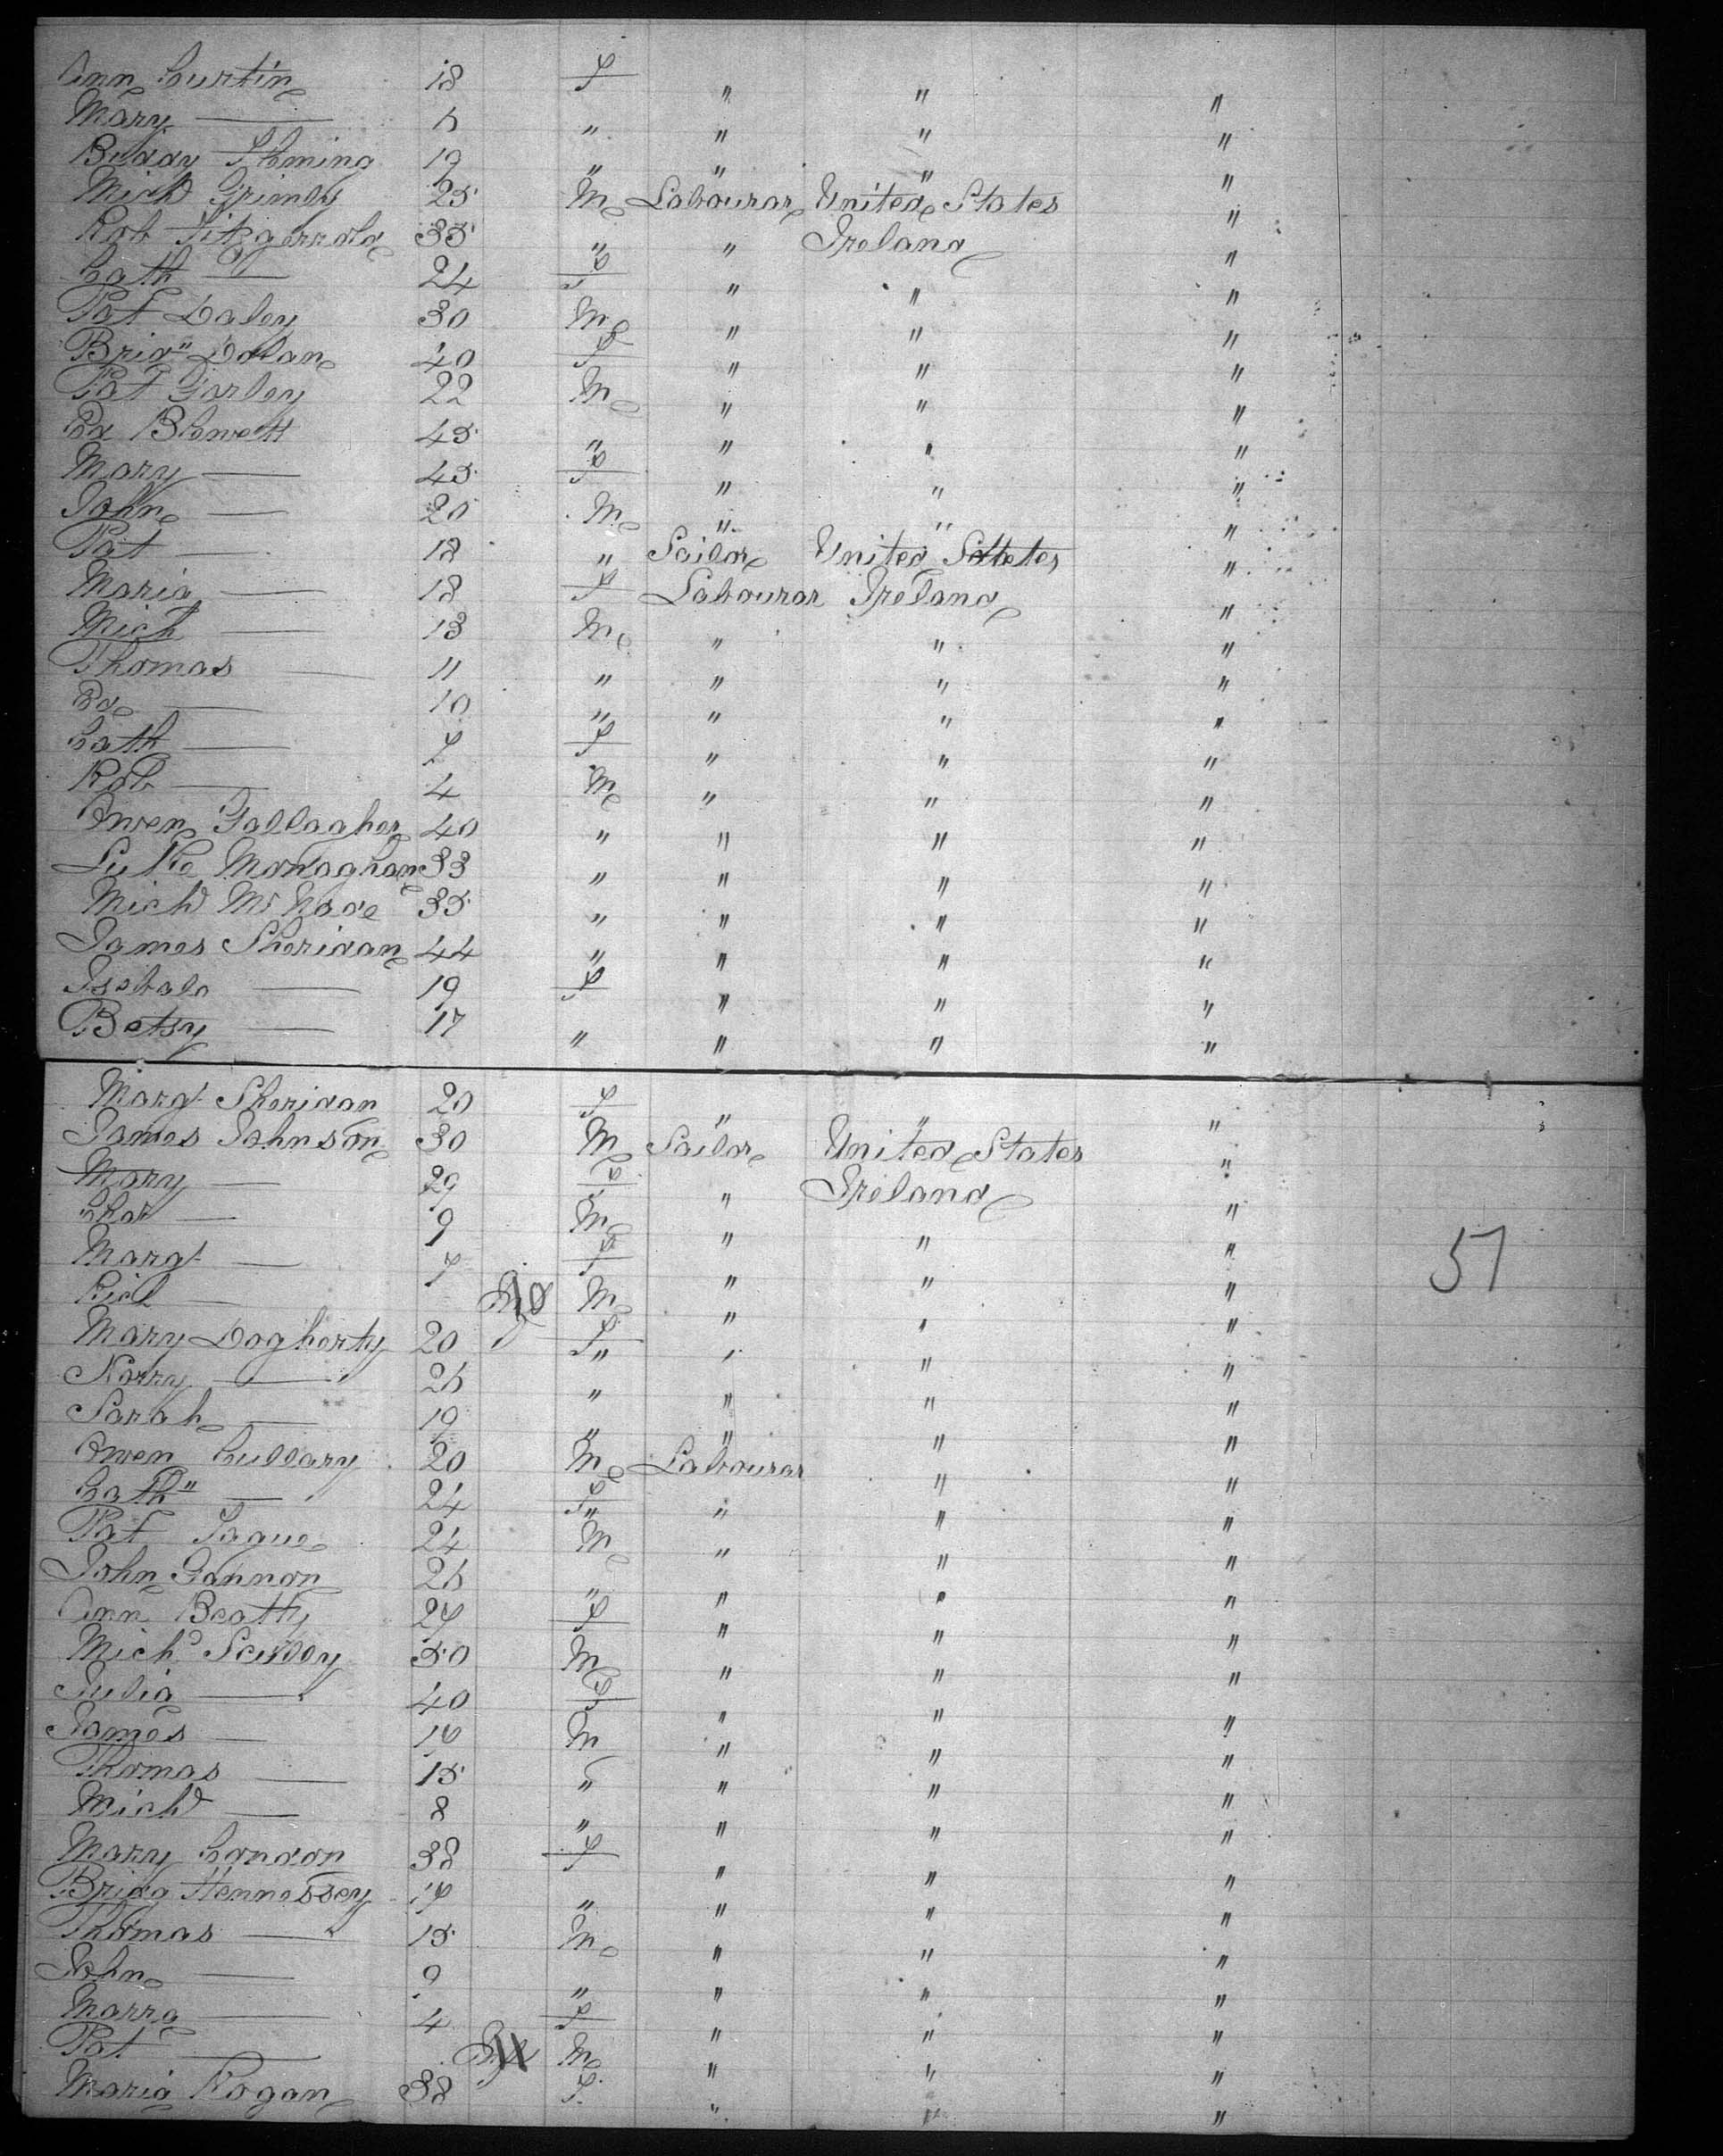 Ann Curtin 18 F " " "
Mary — 6 " " " "
Biddy Fleming 19 " " " "
Mich Grimley 25 M Labourar United States "
Rob Fitzgerrald 35 " " Ireland "
Cath — 24 F " " "
Pat Daley 30 M " " "
Brid" Dolan 40 F " " "
Pat Farley 22 M " " "
Ed Blewett 45 " " " "
Mary — 45 F " " "
John — 20 M " " "
Pat — 18 " Sailor United States "
Maria — 18 F Labourar Ireland "
Mich — 13 M " " "
Thomas — 11 " " " "
Ed — 10 " " " "
Cath — 7 F " " "
Rob — 4 M " " "
Owen Gallagher 40 " " " "
Luke Monaghan 33 " " " "
Mich 35 " " " "
James Sheridan 44 " " " "
Isebala — 19 F " " "
Betsy — 17 " " " "
Margt Sheridan 20 F " " "
James Johnson 30 M Sailor United States "
Mary — 29 F " Ireland "
Char — 9 M " " "
Margt — 7 F " " "
Rich — M " " "
Mary Dogherty 20 F " " " "
Norry — 26 " " " "
Sarah — 19 " " " "
Owen Cullary 20 M Labourar " "
Cath" — 24 F " " " "
Pat Tague 24 M " " "
John Gannon 26 " " " "
Ann Beatty 24 F " " "
Mich Scully 50 M " " "
Julia — 40 F " " "
James — 16 M " " "
Thomas — 15 " " " "
Mich — 8 " " " "
Mary Condon 38 F " " "
Bridg Hennessey 17 " " " "
Thomas — 15 M " " "
John — 9 " " " "
Marra — 4 F " " "
Pat — M " " "
Maria Kogan 38 F " " "
51